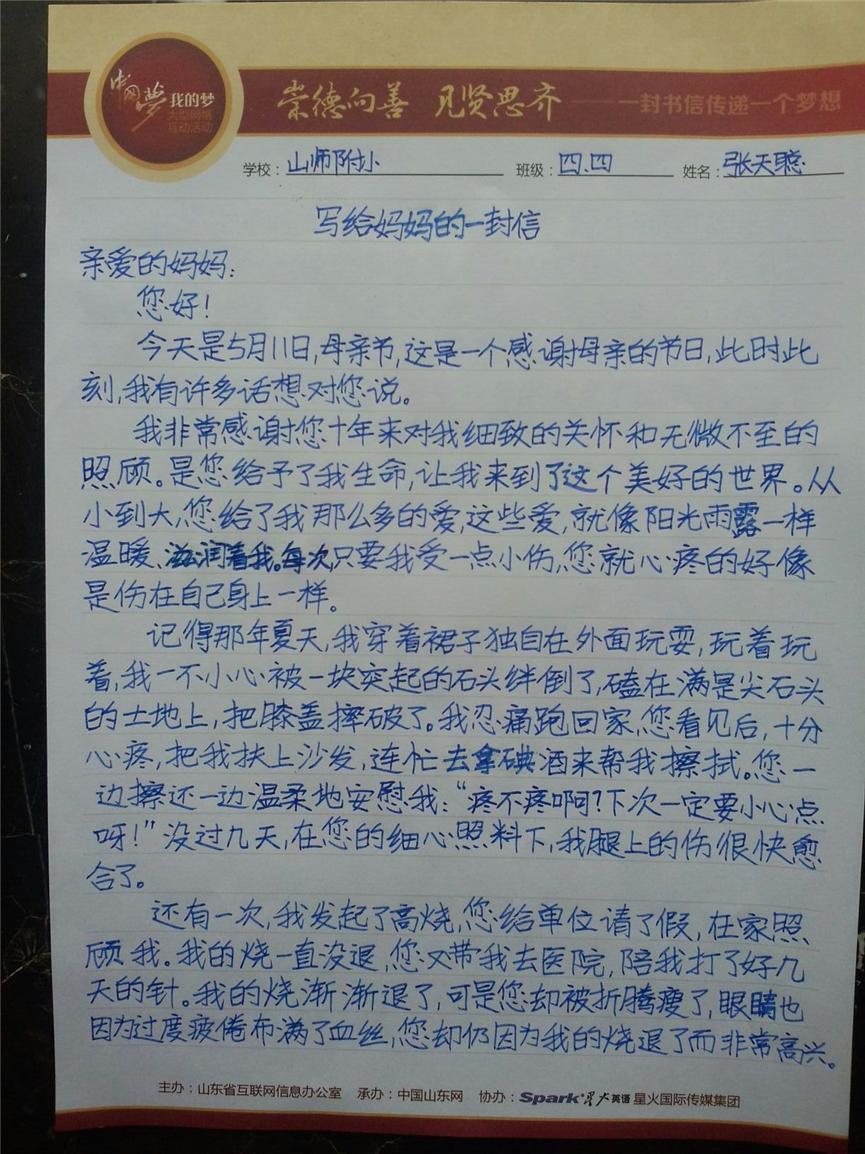 中国梦 我的梦
大型网络
互动活动
崇德向善 见贤思齐 ——一封书信传递一个梦想
学校：山师附小 班级：四.四 姓名：张天聪
写给妈妈的一封信
亲爱的妈妈：
您好！
今天是5月11日,母亲节,这是一个感谢母亲的节日,此时此
刻,我有许多话想对您说。
我非常感谢您十年来对我细致的关怀和无微不至的
照顾。是您给予了我生命,让我来到了这个美好的世界。从
小到大,您给了我那么多的爱,这些爱,就像阳光雨露一样
温暖、滋润着我。每次,只要我受一点小伤,您就心疼的好像
是伤在自己身上一样。
记得那年夏天,我穿着裙子独自在外面玩耍,玩着玩
着,我一不小心被一块突起的石头绊倒了,磕在满是尖石头
的土地上,把膝盖摔破了。我忍痛跑回家,您看见后,十分
心疼,把我扶上沙发,连忙去拿碘酒来帮我擦拭。您一
边擦还一边温柔地安慰我:“疼不疼啊?下次一定要小心点
呀!”没过几天,在您的细心照料下,我腿上的伤很快愈
合了。
还有一次,我发起了高烧,您给单位请了假,在家照
顾我。我的烧一直没退,您又带我去医院,陪我打了好几
天的针。我的烧渐渐退了,可是您却被折腾瘦了,眼睛也
因为过度疲倦布满了血丝,您却仍因为我的烧退了而非常高兴。
主办：山东省互联网信息办公室 承办：中国山东网 协办：Spark 星火英语 星火国际传媒集团